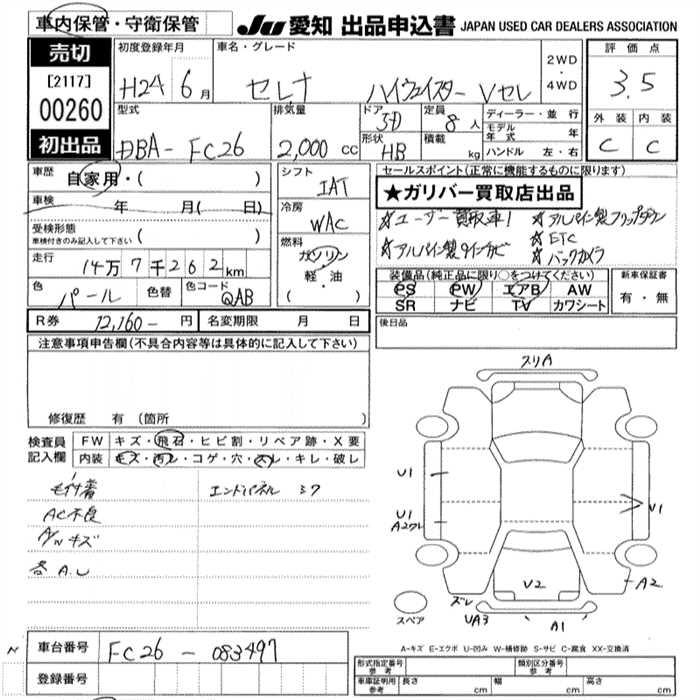 車内保管・守衛保管
JU 愛知 出品申込書 JAPAN USED CAR DEALERS ASSOCIATION
売切
[2117]
00260
初出品
初度登録年月 車名・グレード 2WD・4WD
H24 6月 セレナ ハイウェイスター Vセレ
評価点
3.5
外装 内装
C C
型式 排気量 ドア 定員 ディーラー・並行
DBA-FC26 2,000cc 5D 8人 モデル年式 年
形状 積載 ハンドル 左・右
HB kg
車歴 自家用・( )
車検 年 月( 日)
受検形態
車検付きのみ記入して下さい ( )
走行 14万7千262km
色 パール 色替 色コード QAB
シフト IAT
冷房 WAC
燃料 ガソリン
軽・油
( )
セールスポイント(正常に機能するものに限ります)
★ガリバー買取店出品
☆ユーザー買取車! ☆アルパイン製フリップダウン
☆アルパイン製9インナビ ☆ETC
☆バックカメラ
装備品(純正品に限り○をつけてください) 新車保証書
PS PW エアB AW 有・無
SR ナビ TV カワシート
R券 12,160- 円 名変期限 月 日
後日品
注意事項申告欄(不具合内容等は具体的に記入して下さい)
修復歴 有(箇所 )
検査員記入欄 FW キズ・飛石・ヒビ割・リペア跡・X要
内装 キズ・汚レ・コゲ・穴・スレ・キレ・破レ
毛付着 エンドパネル ミワ
AC不良
A/Wキズ
各A.U
スリA
U1
U1
A2ワレ
V1
V2
A2
ズレ
UA3
A1
スペア
A-キズ E-エクボ U-凹み W-補修跡 S-サビ C-腐食 XX-交換済
車台番号 FC26-083497
登録番号
形式指定番号 参考 類別区分番号 参考
車庫証明用 参考 長さ cm 幅 cm 高さ cm